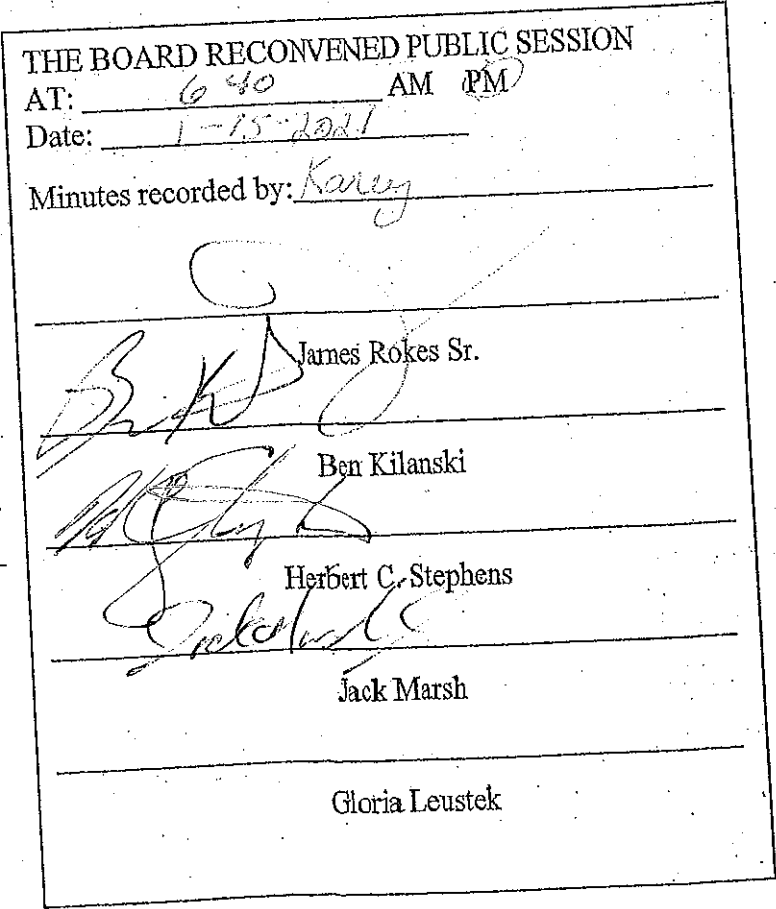 THE BOARD RECONVENED PUBLIC SESSION
AT: 6 40 AM PM
Date: 1-15-2021
Minutes recorded by: Karey
James Rokes Sr.
Ben Kilanski
Herbert C. Stephens
Jack Marsh
Jack Marsh
Gloria Leustek